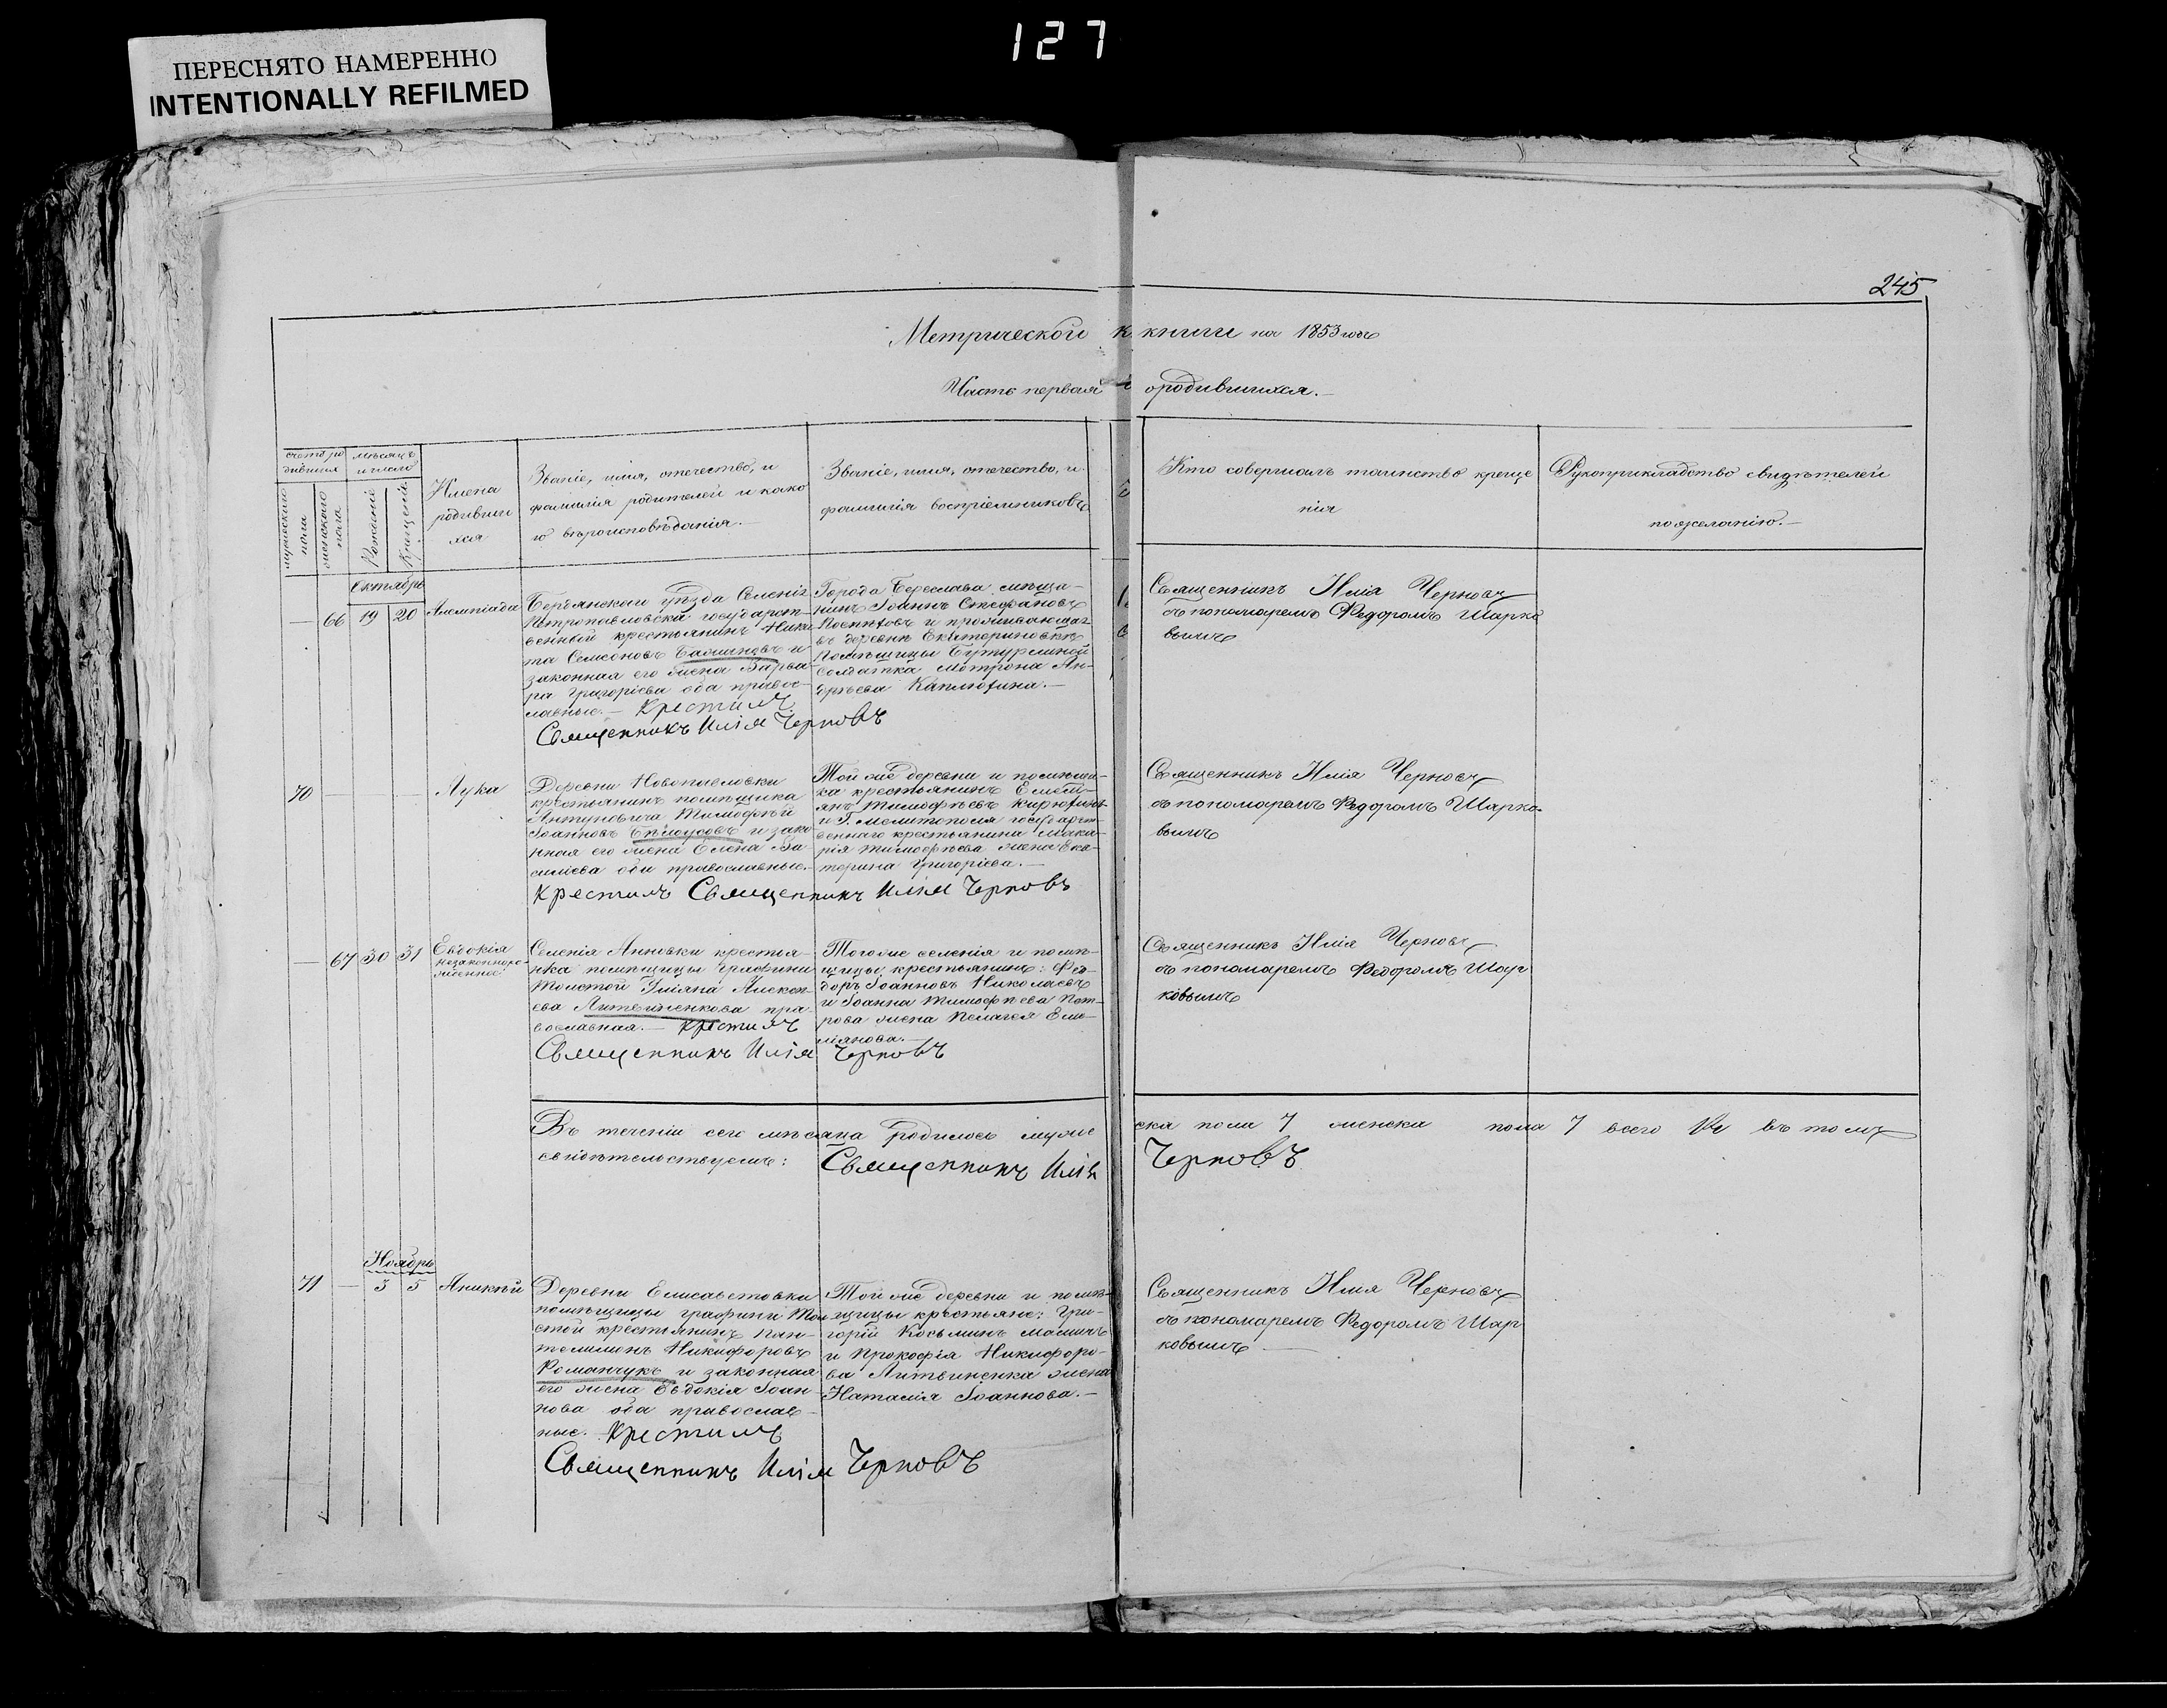 127
ПЕРЕСНЯТО НАМЕРЕННО
INTENTIONALLY REFILMED
245
Метрической книги на 1853 годъ
Часть первая о родившихся.—
счетъ ро
дившихся
мѣсяцъ
и число
мужескаго
пола
женскаго
пола
Рожденіе
Крещеніе
Имена
родивши
хся
Званіе, имя, отечество, и
фамилія родителей и како
го вѣроисповѣданія.
Званіе, имя, отечество, и
фамилія воспріемниковъ
Кто совершалъ таинство креще
нія
Рукоприкладство свидѣтелей
по желанію.—
Октябрь
— 66 19 20
Бердянскаго уѣзда Селенія
Петропавловска государст-
венный крестьянинъ Ники
та Семеновъ и
законная его жена Варва-
ра Григорієва оба правос-
лавные.— Крестилъ
Священникъ Илія Черновъ
Города Береслава мѣща-
нинъ Іоаннъ Стефановъ
и проживающая
въ деревнѣ Екатериновкѣ
Помѣщицы Бутурлиной
солдатка Матрона Ан-
дрѣева
Священникъ Илія Черновъ
съ пономаремъ Федоромъ Шарко
вымъ
70 — — — Лука
Деревни Новопавловки
крестьянинъ помѣщика
Антуновича Тимофѣй
Іоанновъ Бѣлоусовъ и зако-
нная его жена Елена Ва-
силіева оба православные.—
Крестилъ Священникъ Илія Черновъ
Той же деревни и помѣщи-
ка крестьянинъ Емели-
янъ Тимофѣевъ
и Г. Мелитополя государст-
веннаго крестьянина Мака-
рія Тимофѣева жена Ека-
терина Григоріева.—
Священникъ Илія Черновъ
съ пономаремъ Федоромъ Шарко-
вымъ
— 67 30 31 Евдокія
незаконноро-
жденная
Селенія Анновки крестья-
нка помѣщицы графини
Толстой Уліяна Алексѣ-
ева Литвиненкова пра-
вославная.— Крестилъ
Священникъ Илія Черновъ
Того же селенія и помѣ-
щицы крестьянинъ: Фео-
доръ Іоанновъ Николаевъ
и Іоанна Тимофѣева Пет-
рова жена Пелагея Еме-
ліянова.—
Священникъ Илія Черновъ
съ пономаремъ Федоромъ Шар
ковымъ
Въ теченіи сего мѣсяца родилось муже
ска пола 7 женска пола 7 всего 14 въ томъ
свидѣтельствуемъ: Священникъ Илія Черновъ
Ноябрь
71 — 3 5 Аникій
Деревни Елисаветовки
помѣщицы графини Тол
стой крестьянинъ Пан-
телимонъ Никифоровъ
Романчукъ и законная
его жена Евдокія Іоан-
нова оба православ-
ные. Крестилъ
Священникъ Илія Черновъ
Той же деревни и помѣ-
щицы крестьяне: Гри-
горій Косьминъ
и Прокофія Никифоро-
ва Литвиненка жена
Наталія Іоаннова.—
Священникъ Илія Черновъ
съ пономаремъ Федоромъ Шар
ковымъ —